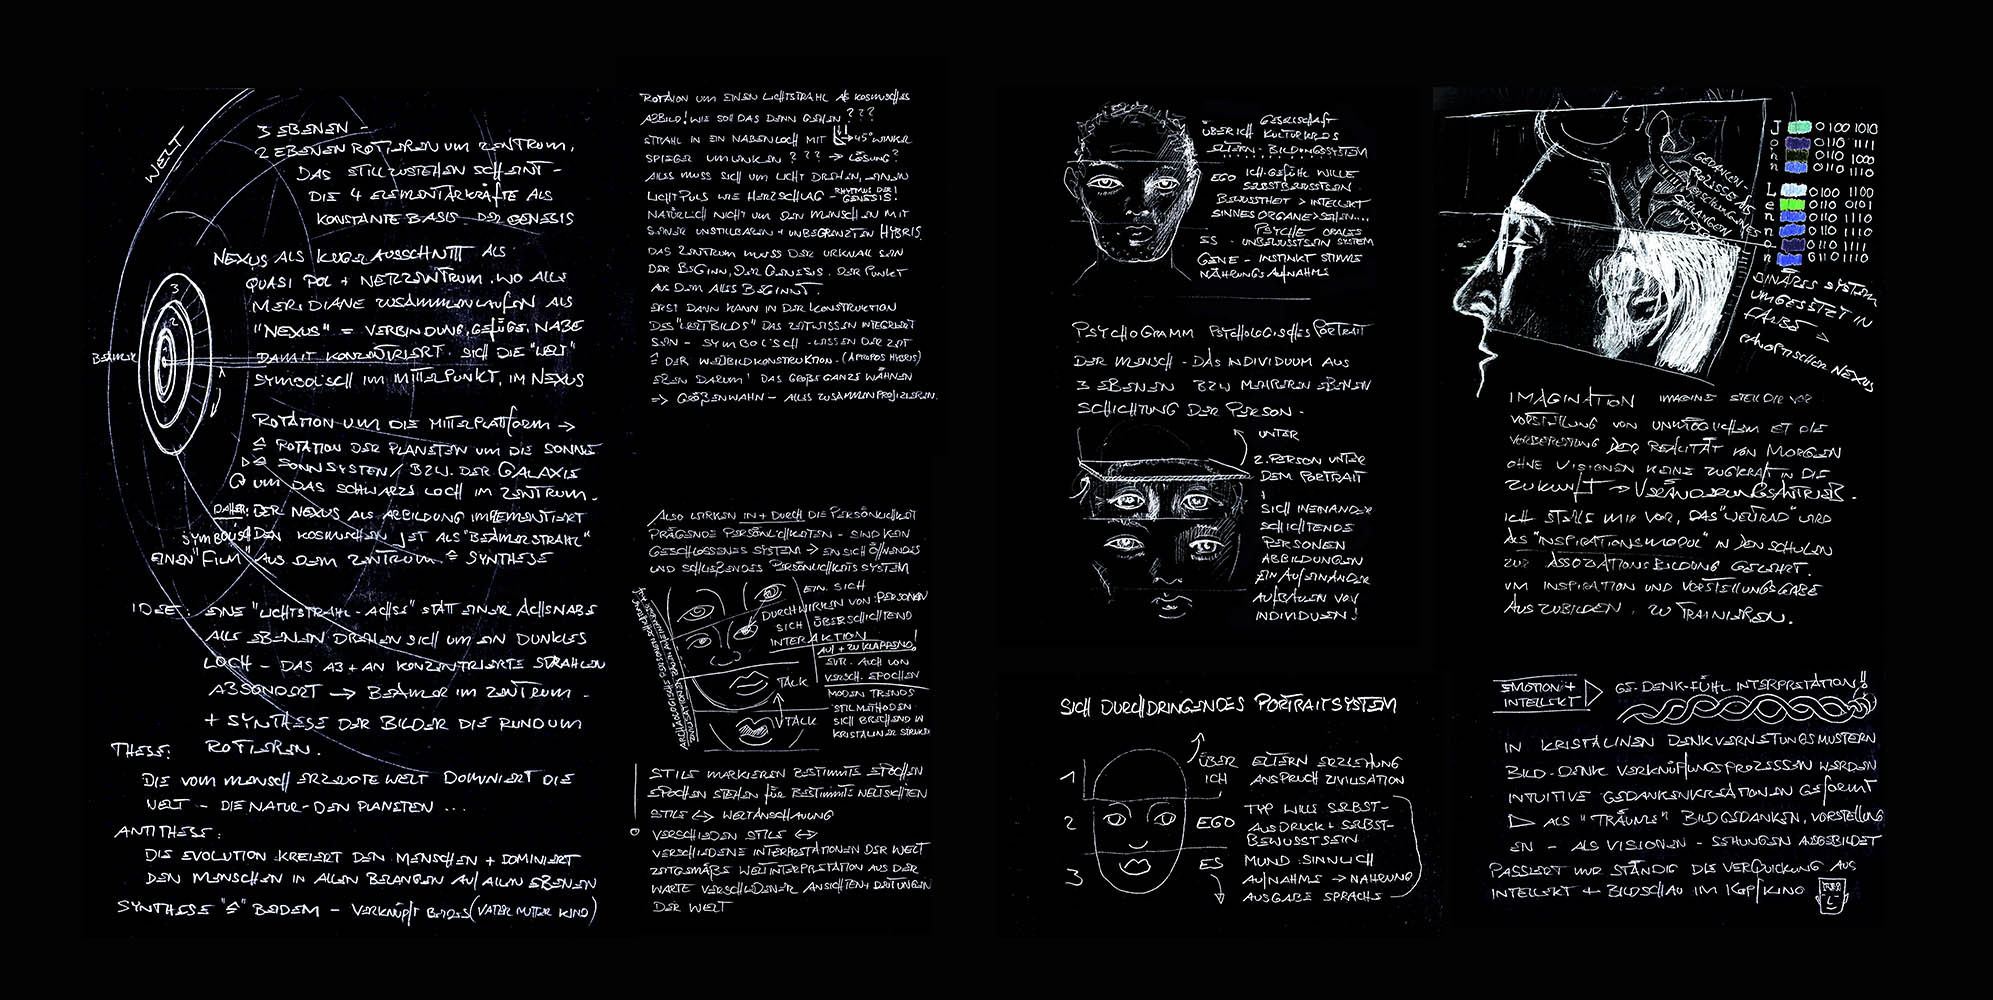 WELT
3 EBENEN -
2 EBENEN ROTIEREN UM ZENTRUM,
DAS STILLZUSTEHEN SCHEINT -
DIE 4 ELEMENTARKRÄFTE ALS
KONSTANTE BASIS DER GENESIS
NEXUS ALS KUGELAUSSCHNITT ALS
QUASI POL + NETZZENTRUM, WO ALLE
MERIDIANE ZUSAMMENLAUFEN ALS
"NEXUS" = VERBINDUNG, GEFÜGE, NABE
DAMIT KONZENTRIERT SICH DIE "WELT"
SYMBOLISCH IM MITTELPUNKT, IM NEXUS
3
2
1
BEAMER
ROTATION UM DIE MITTELPLATTFORM →
≙ ROTATION DER PLANETEN UM DIE SONNE
SONNSYSTEM / BZW. DER GALAXIE
UM DAS SCHWARZE LOCH IM ZENTRUM -
DAHER: DER NEXUS ALS ABBILDUNG IMPLEMENTIERT
SYMBOLISCH DEN KOSMISCHEN JET ALS "BEAMERSTRAHL"
EINEN "FILM" AUS DEM ZENTRUM ≙ SYNTHESE
IDEE: EINE "LICHTSTRAHL-ACHSE" STATT EINER ACHSNABE
ALLE EBENEN DREHEN SICH UM EIN DUNKLES
LOCH - DAS AB + AN KONZENTRIERTE STRAHLEN
ABSONDERT → BEAMER IM ZENTRUM -
+ SYNTHESE DER BILDER DIE RUNDUM
ROTIEREN.
THESE:
DIE VOM MENSCH ERZEUGTE WELT DOMINIERT DIE
WELT - DIE NATUR - DEN PLANETEN ...
ANTITHESE:
DIE EVOLUTION KREIERT DEN MENSCHEN + DOMINIERT
DEN MENSCHEN IN ALLEN BELANGEN AUF ALLEN EBENEN
SYNTHESE "≙" BEIDEM - VERKNÜPFT BEIDES (VATER MUTTER KIND)
ROTATION UM EINEN LICHTSTRAHL ALS KOSMISCHES
ABBILD! WIE SOLL DAS DENN GEHEN ???
STRAHL IN EIN NABENLOCH MIT 45° WINKEL
SPIEGEL UMLENKEN ??? → LÖSUNG?
ALLES MUSS SICH UM LICHT DREHEN, EINEN
LICHTPULS WIE HERZSCHLAG - RHYTMUS DER GENESIS!
NATÜRLICH NICHT UM DEN MENSCHEN MIT
SEINER UNSTILLBAREN + UNBEGRENZTEN HYBRIS.
DAS ZENTRUM MUSS DER URKNALL SEIN
DER BEGINN, DER GENESIS, DER PUNKT
AUS DEM ALLES BEGINNT.
ERST DANN KANN IN DER KONSTRUKTION
DES "WELTBILDS" DAS ZEITWISSEN INTEGRIERT
SEIN - SYMBOLISCH - WISSEN DER ZEIT
≙ DER WELTBILDKONSTRUKTION - (APROPOS HYBRIS)
EBEN DARUM! DAS GROßE GANZE WÄHNEN
=> GRÖßENWAHN - ALLES ZUSAMMENPROJIZIEREN.
ALSO WIRKEN IN + DURCH DIE PERSÖNLICHKEIT
PRÄGENDE PERSÖNLICHKEITEN - SIND KEIN
GESCHLOSSENES SYSTEM → EIN SICH ÖFFNENDES
UND SCHLIEßENDES PERSÖNLICHKEITSSYSTEM
EIN SICH
DURCHWIRKEN VON PERSONEN
SICH ÜBERSCHICHTEND
INTERAKTION!
AUF + ZU KLAPPEND!
EVTL. AUCH VON
VERSCH. EPOCHEN
MODEN TRENDS
STILMETHODEN
SICH BRECHEND IN
KRISTALINER STRUKTUR
TALK
TALK
STILE MARKIEREN BESTIMMTE EPOCHEN
EPOCHEN STEHEN FÜR BESTIMMTE WELTSICHTEN
STILE <-> WELTANSCHAUUNG
VERSCHIEDEN STILE <->
VERSCHIEDENE INTERPRETATIONEN DER WELT
ZEITGEMÄßE WELTINTERPRETATION AUS DER
WARTE VERSCHIEDENER ANSICHTEN, DEUTUNGEN
DER WELT
GESELLSCHAFT
ÜBER ICH KULTURKREIS
ELTERN - BILDUNGSSYSTEM
EGO ICH-GEFÜHL WILLE
SELBSTBEWUSSTSEIN
BEWUSSTHEIT > INTELLEKT
SINNESORGANE > SEHEN...
PSYCHE ORALES
ES - UNBEWUSSTSEIN SYSTEM
GENE - INSTINKT STIMME
NAHRUNGSAUFNAHME
PSYCHOGRAMM PSYCHOLOGISCHES PORTRAIT
DER MENSCH - DAS INDIVIDUUM AUS
3 EBENEN BZW MEHREREN EBENEN
SCHICHTUNG DER PERSON -
UNTER
2. PERSON UNTER
DEM PORTRAIT
!
SICH INEINANDER
SCHICHTENDE
PERSONEN
ABBILDUNGEN
EIN AUFEINANDER
AUFBAUEN VON
INDIVIDUEN!
SICH DURCHDRINGENDES PORTRAITSYSTEM
1
2
3
ÜBER ICH
ELTERN ERZIEHUNG
ANSPRUCH ZIVILISATION
EGO
TYP WILLE SELBST-
AUSDRUCK + SELBST-
BEWUSSTSEIN
ES
MUND SINNLICH
AUFNAHME → NAHRUNG
AUSGABE SPRACHE
J 0100 1010
o 0110 1111
h 0110 1000
n 0110 1110
L 0100 1100
e 0110 0101
n 0110 1110
n 0110 1110
o 0110 1111
n 0110 1110
GEDANKEN-
PROZESSE ALS
VERSCHLUNGENES
SCHLANGEN
MUSTER
BINÄRES SYSTEM
UMGESETZT IN
FARBE
PANOPTISCHER NEXUS
IMAGINATION IMAGINE STELL DIR VOR
VORSTELLUNG VON UNMÖGLICHEM IST DIE
VORBEREITUNG DER REALITÄT VON MORGEN
OHNE VISIONEN KEINE ZUGKRAFT IN DIE
ZUKUNFT → VERÄNDERUNGSANTRIEB.
ICH STELLE MIR VOR, DAS "WELTRAD" WIRD
ALS "INSPIRATIONSMODUL" IN DEN SCHULEN
ZUR ASSOZIATIONSBILDUNG GELEHRT.
UM INSPIRATION UND VORSTELLUNGSGABE
AUSZUBILDEN, ZU TRAINIEREN.
EMOTION +
INTELLEKT
GE-DENK-FÜHL INTERPRETATION!!
IN KRISTALINEN DENKVERNETUNGSMUSTERN
BILD-DENK VERKNÜPFUNGSPROZESSEN WERDEN
INTUITIVE GEDANKENKREATIONEN GEFORMT
▷ ALS "TRÄUME" BILDGEDANKEN, VORSTELLUNG
EN - ALS VISIONEN - SEHUNGEN AUSGEBILDET
PASSIERT NUR STÄNDIG DIE VERQUICKUNG AUS
INTELLEKT + BILDSCHAU IM KOPFKINO